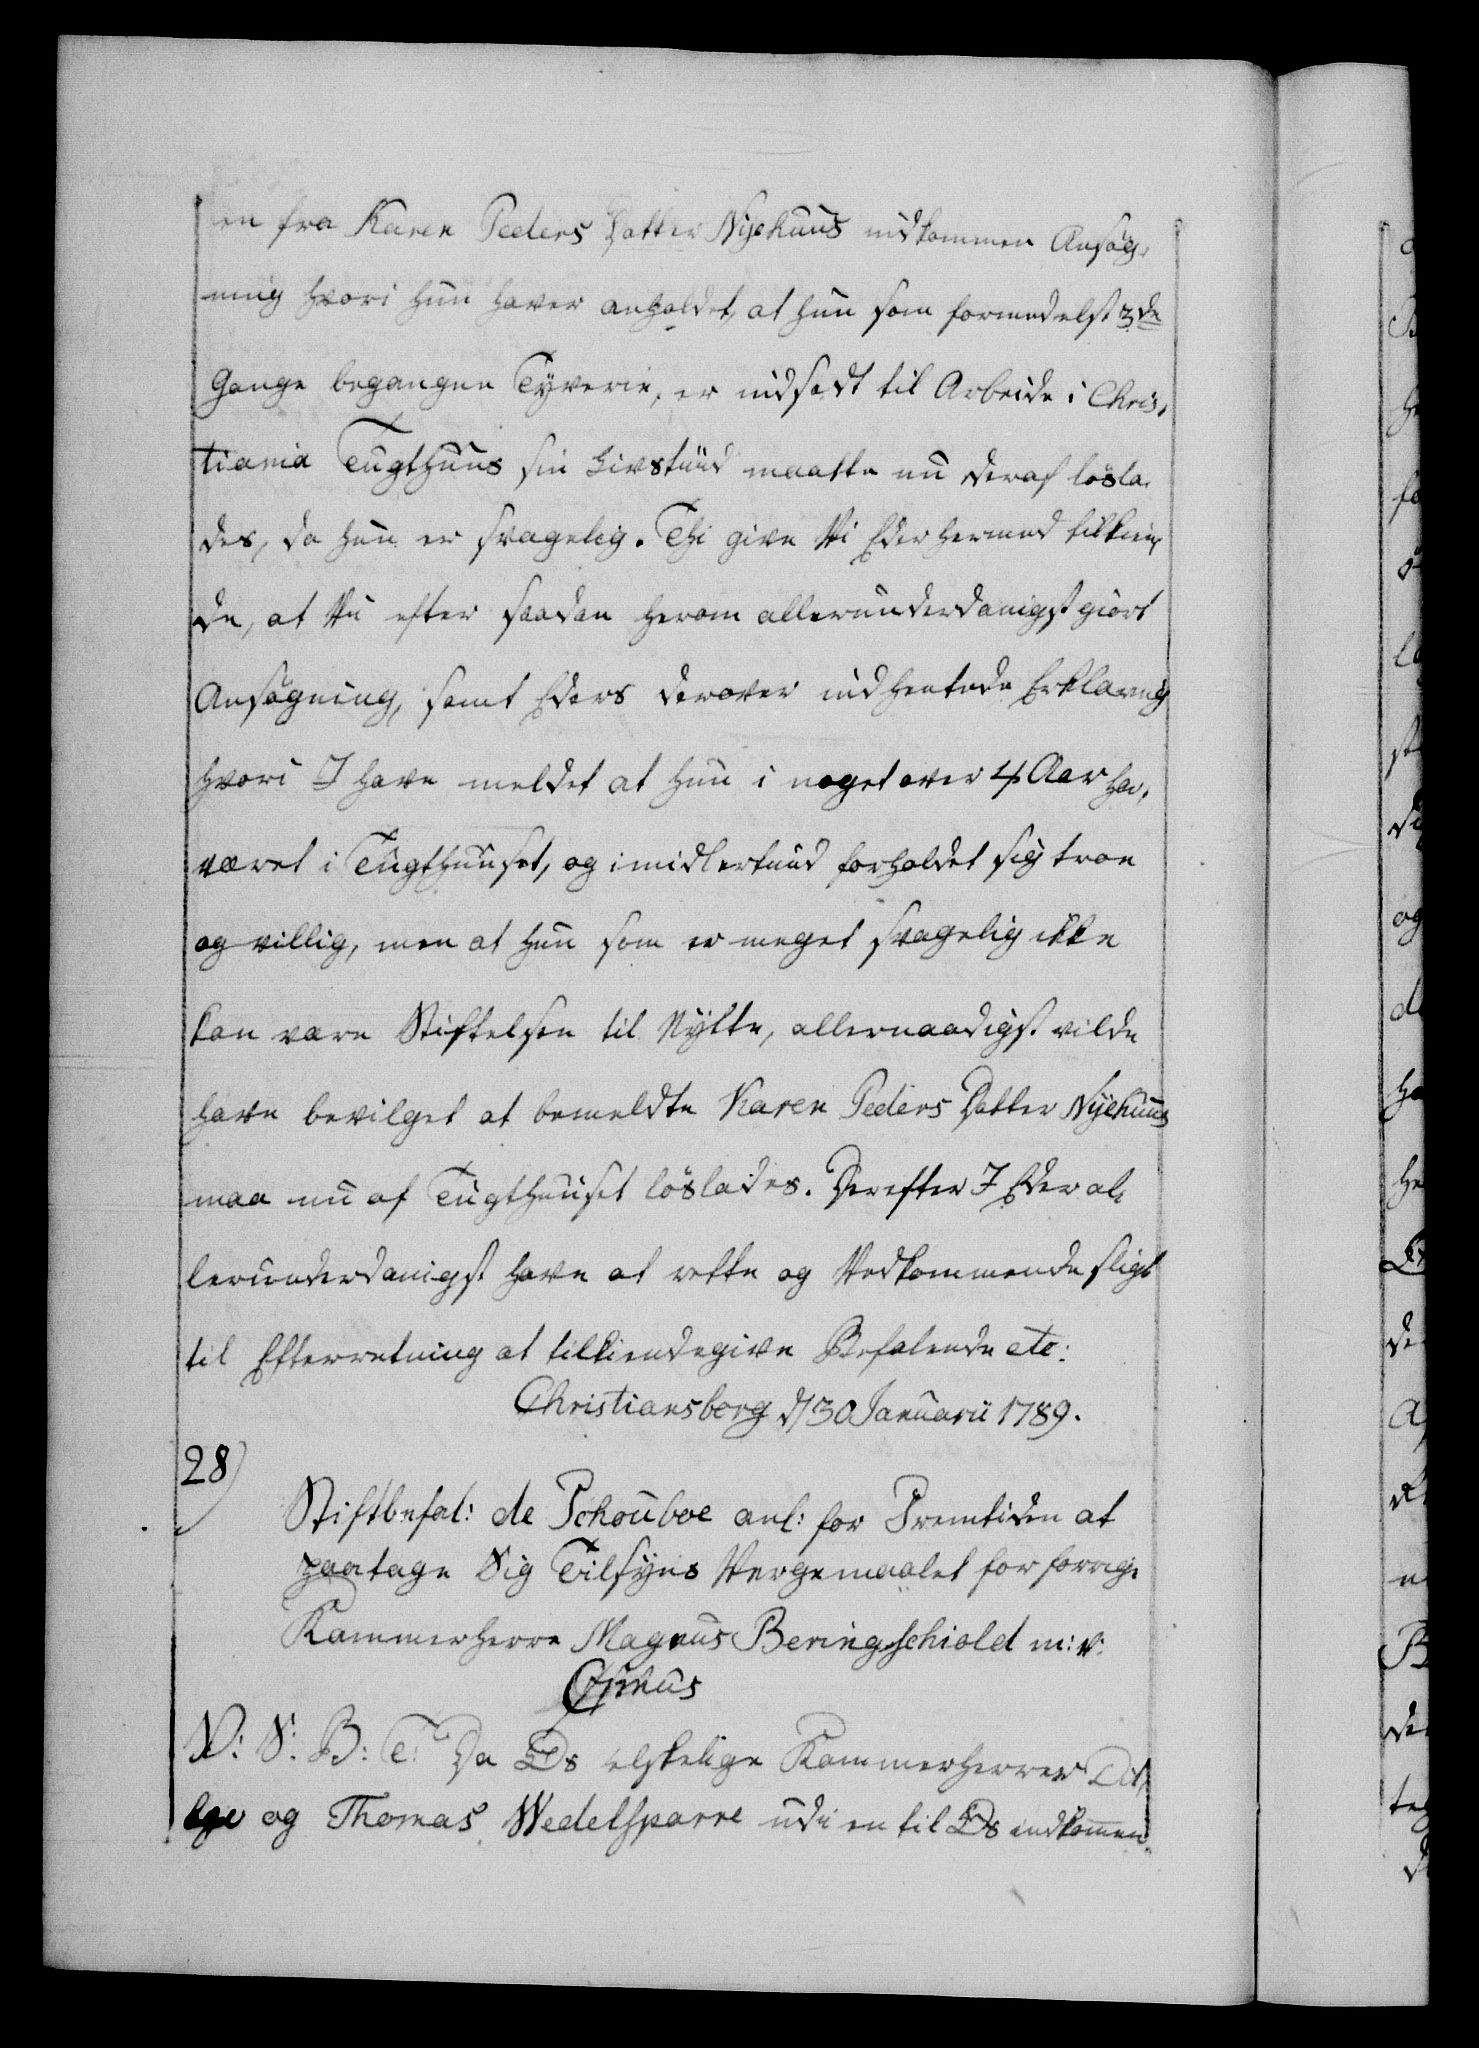 en fra Karen Peders Datter Nyehuus indkommen Ansøg,
ning hvori hun haver anholdet, at hun som formedelst 3de
Gange begangne Tyverie, er indsadt til Arbeide i Chris,
tiania Tugthuus sin Livstiid maatte nu deraf løsla,
des, da hun er svagelig. Thi give Vi Eder hermed tilkien,
de, at Vi efter saadan herom allerunderdanigst giort
Ansøgning, samt Eders derover indhentede Erklæring
hvori I have meldet at hun i noget over 4 Aar har,
været i Tugthuuset, og imidlertiid forholdet sig troe
og villig, men at hun som er meget svagelig ikke
kan være Stiftelsen til Nytte, allernaadigst vilde
have bevilget at bemeldte Karen Peders Datter Nyehuus
maa nu af Tugthuuset løslades. Derefter I Eder al,
lerunderdanigst have at rette og Vedkommende sligt
til Efterretning at tilkiendegive Befalende etc:
Christiansborg d/ 30 Januarii 1789.
28)
Stiftbefal: de Schouboe anl: for Fremtiden at
paatage Sig Tilsyns Værgemaalet for forrige
Kammerherre Magnus Beringschiold m: v:
C7mus
V: S: B: T: Da Os elskelige Kammerherrer Dit,
lev og Thomas Wedelsparre udi en til Os indkommen